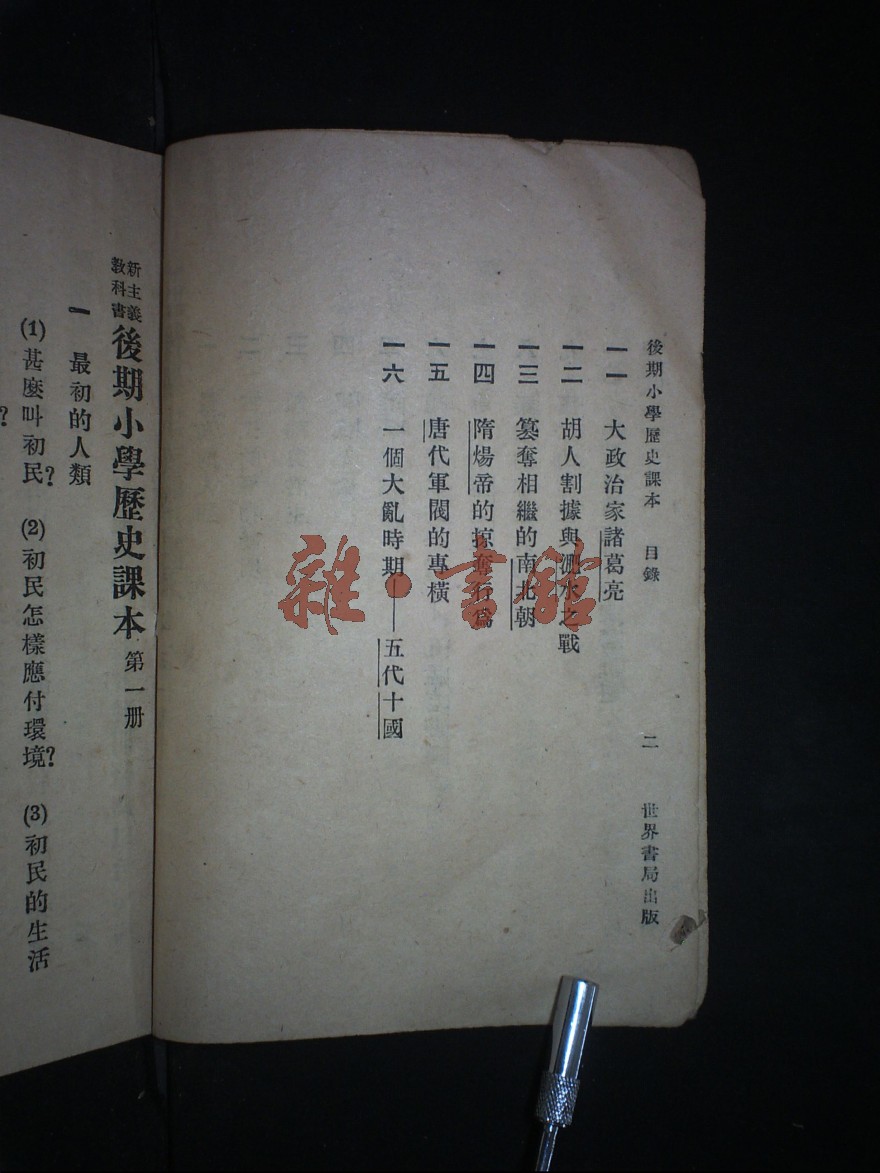 後期小學歷史課本 目錄 二 世界書局出版
一一 大政治家諸葛亮
一二 胡人割據與淝水之戰
一三 篡奪相繼的南北朝
一四 隋煬帝的掠奪行爲
一五 唐代軍閥的專橫
一六 一個大亂時期——五代十國
新主義教科書 後期小學歷史課本 第一册
一 最初的人類
(1)甚麽叫初民? (2)初民怎樣應付環境? (3)初民的生活
?
雜·書館